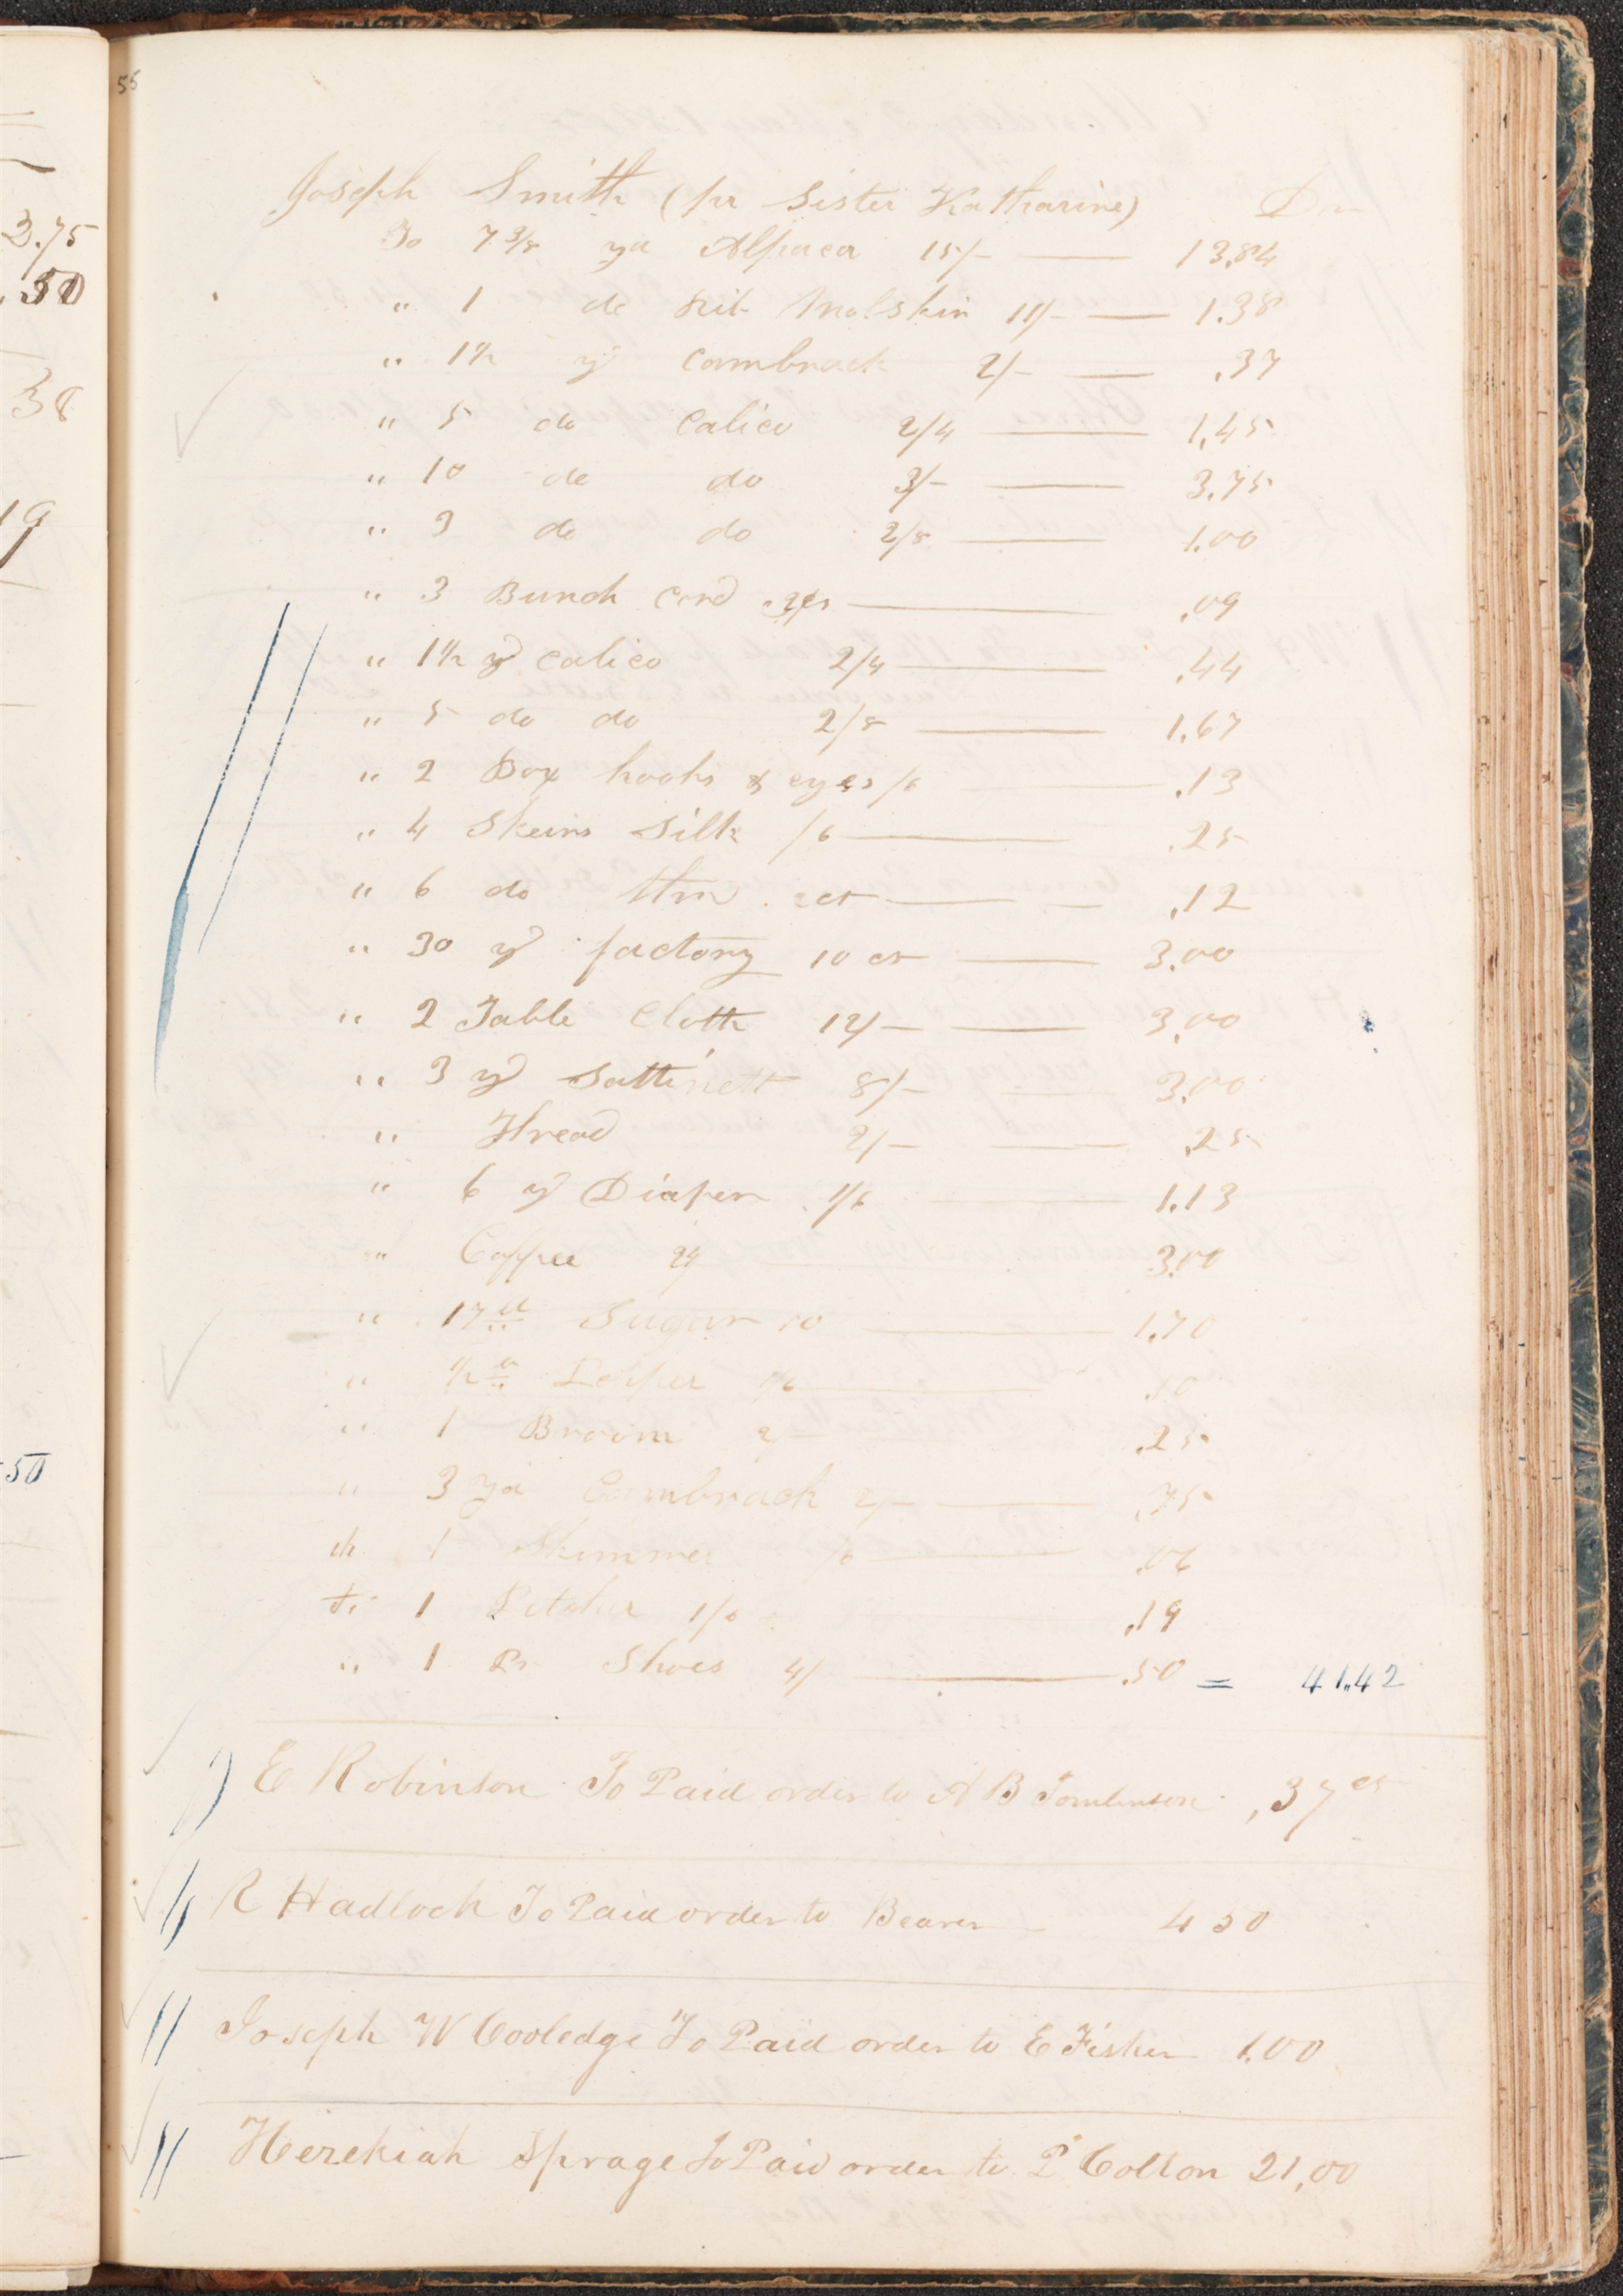 55
3.75
.50
38
19
50
Joseph Smith (pr Sister Katharine) Dr
To 7 3/8 yd Alpaca 15/- 13.84
" 1 do Molskin 11/- 1.38
" 1 1/2 yd Cambrack 2/- .37
" 5 do Calico 2/4 1.45
" 10 do do 3/- 3.75
" 3 do do 2/8 1.00
" 3 Bunch Cord .09
" 1 1/2 yd Calico 2/4 .44
" 5 do do 2/8 1.67
" 2 Box hooks & eyes /6 .13
" 4 Skeins Silk /6 .25
" 6 do thrd 2cts .12
" 30 yd factory 10 cts 3.00
" 2 Table Cloth 12/- 3.00
" 3 yd Sattinett 8/- 3.00
" Thread 2/- .25
" 6 yd Diaper 1/6 1.13
" Coffee 24 3.00
" 17 lb Sugar 10 1.70
" 1/2 lb Pepper .10
" 1 Broom 2/- .25
" 3 yd Cambrack 2/- .75
" 1 Skimmer /6 .06
" 1 Pitcher 1/6 .19
" 1 Pr Shoes 4/ .50 = 41.42
E Robinson To Paid order to A B Tomlinson .37 cts
R Hadlock To Paid order to Bearer 4 50
Joseph W Cooledge To Paid order to E Fisher 1.00
Hezekiah Sprage To Paid order to P Colton 21,00